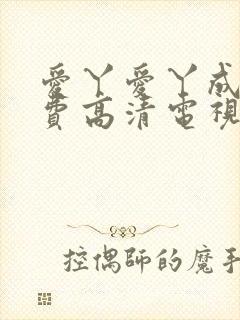 愛丫愛丫成
費高清電視
控偶師的魔手